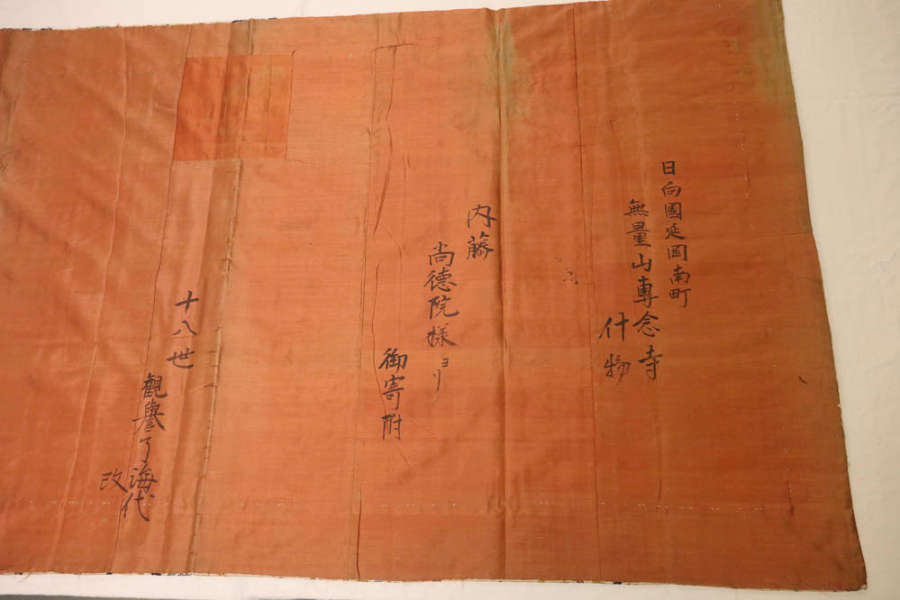 日向國延岡南町
無量山專念寺
什物
内藤
尚德院様ヨリ
御寄附
十八世
觀譽了海代
改